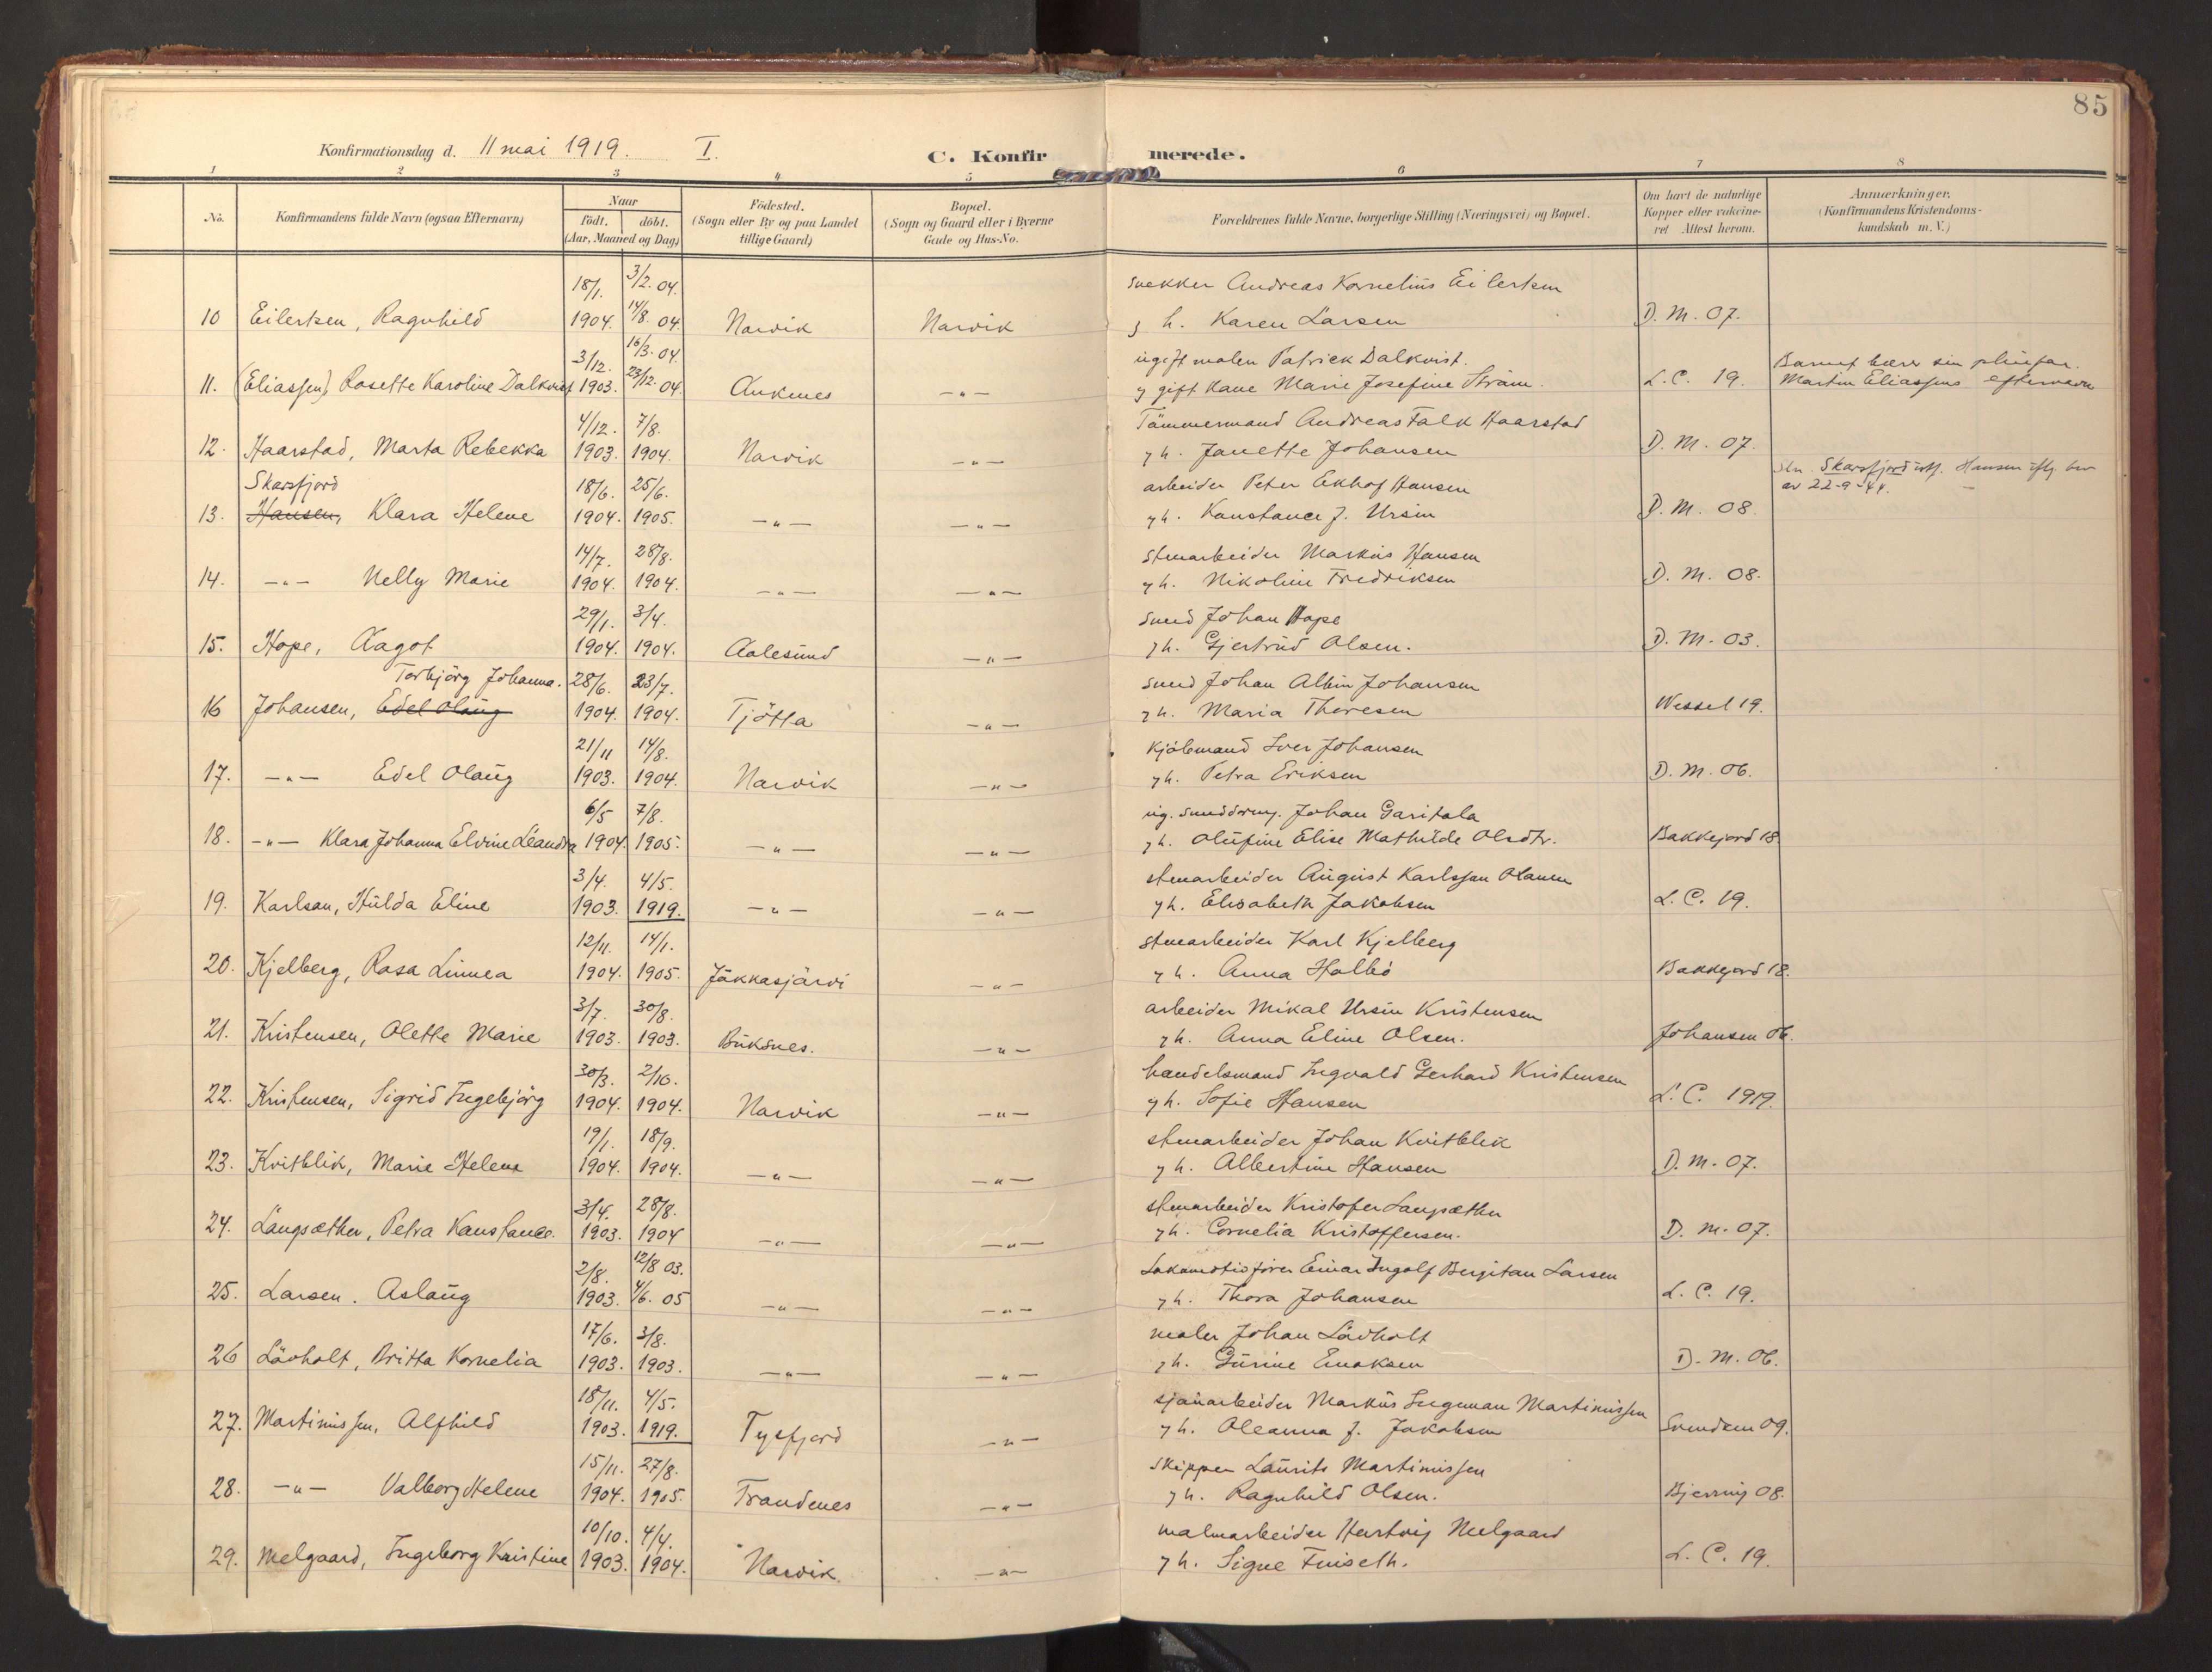 85
Konfirmationsdag d. 11 mai 1919. I.
C. Konfirmerede.
1 2 3 4 5 6 7 8
No. Konfirmandens fulde Navn (ogsaa Efternavn) Naar født. døbt. (Aar, Maaned og Dag) Fødested. (Sogn eller By og paa Landet tillige Gaard) Bopæl. (Sogn og Gaard eller i Byerne Gade og Hus-No. Forældrenes fulde Navne, borgerlige Stilling (Næringsvei) og Bopæl. Om havt de naturlige Kopper eller vakcineret Attest herom. Anmærkninger. (Konfirmandens Kristendomskundskab m. V.)
18/1. 3/2. 04. snekker Andreas Kornelius Eilertsen
10 Eilertsen, Ragnhild 1904. 14/8. 04. Narvik Narvik h. Karen Larsen D. M. 07.
3/12. 16/3. 04. ugift maler Patrick Dalkvist. Barnet bærer sin pleiefar
11. (Eliassen), Rosette Karoline Dalkvist 1903. 23/12. 04. Ankenes -"- og gift Kone Marie Josefine Strøm. L. C. 19. Martin Eliassens efternavn
4/12. 7/8. Tømmermand Andreas Falk Haarstad
12. Haarstad, Marta Rebekka 1903. 1904. Narvik -"- h. Janette Johansen D. M. 07.
Skarsfjord 18/6. 25/6. arbeider Peter Ekhof Hansen Skarsfjord istf. Hansen iflg. bev. av 22-9-44.
13. Hansen, Klara Helene 1904. 1905. -"- -"- h. Konstance J. Ursin D. M. 08.
14/7. 28/8. stenarbeider Markus Hansen
14. -"- Nelly Marie 1904. 1904. -"- -"- h. Nikoline Fredriksen D. M. 08.
29/1. 3/4. smed Johan Hope
15. Hope, Aagot 1904. 1904. Aalesund -"- h. Gjertrud Olsen. D. M. 03.
Torbjørg Johanna. 28/6. 23/7. smed Johan Albin Johansen
16 Johansen, Edel Olaug 1904. 1904. Tjøtta -"- h. Maria Thoresen Wessel 19.
21/11 14/8. Kjøbmand Iver Johansen
17. -"- Edel Olaug 1903. 1904. Narvik -"- h. Petra Eriksen D. M. 06.
6/5 7/8. ug. Johan Garitala
18. -"- Klara Johanna Elvine Leandra 1904. 1905. -"- -"- h. Olufine Elise Mathilde Olsdtr. Bakkejord 18.
3/4. 4/5. stenarbeider August Karlsson
19. Karlsan, Hulda Eline 1903. 1919. -"- -"- h. Elisabeth Jakobsen L. C. 19.
12/11. 14/1. stenarbeider Karl Kjelberg
20. Kjelberg, Rosa Linnea 1904. 1905. Jükkasjärvi -"- h. Anna Holbø Bakkejord 18.
3/7. 30/8. arbeider Mikal Ursin Kristensen
21. Kristensen, Olette Marie 1903. 1903. Buksnes. -"- h. Anna Eline Olsen. Johansen 06.
30/3. 2/10. handelsmand Ingvald Gerhard Kristensen
22. Kristensen, Sigrid Ingebjørg 1904. 1904. Narvik -"- h. Sofie Hansen L. C. 1919.
19/1. 18/9. stenarbeider Johan Kvitblik
23. Kvitblik, Marie Helene 1904. 1904. -"- -"- h. Albertine Hansen D. M. 07.
3/4. 28/8. stenarbeider Kristofer Langsæther
24. Langsæther, Petra Konstance. 1903. 1904 -"- -"- h. Cornelia Kristoffersen. D. M. 07.
2/8. 12/8 03. Lokomotivfører Einar Ingolf Bergitan Larsen
25. Larsen. Aslaug 1903. 4/6. 05 -"- -"- h. Thora Johansen L. C. 19.
17/6. 3/8. maler Johan Løvholt
26 Løvholt, Britta Kornelia 1903. 1903. -"- -"- h. Gurine Enoksen D. M. 06.
18/11. 4/5. sjauarbeider Markus Ingeman Martinussen
27. Martinussen, Alfhild 1903. 1919. Tysfjord -"- h. Oleanna J. Jakobsen Svendsen 09.
15/11. 27/8. skipper Laurits Martinussen
28. -"- Valborg Helene 1904. 1905. Trondenes -"- h. Ragnhild Olsen. Bjerring 08.
10/10. 4/4. malmarbeider Hartvig Melgaard
29. Melgaard, Ingeborg Kristine 1903. 1904. Narvik. -"- h. Signe Finseth. L. C. 19.